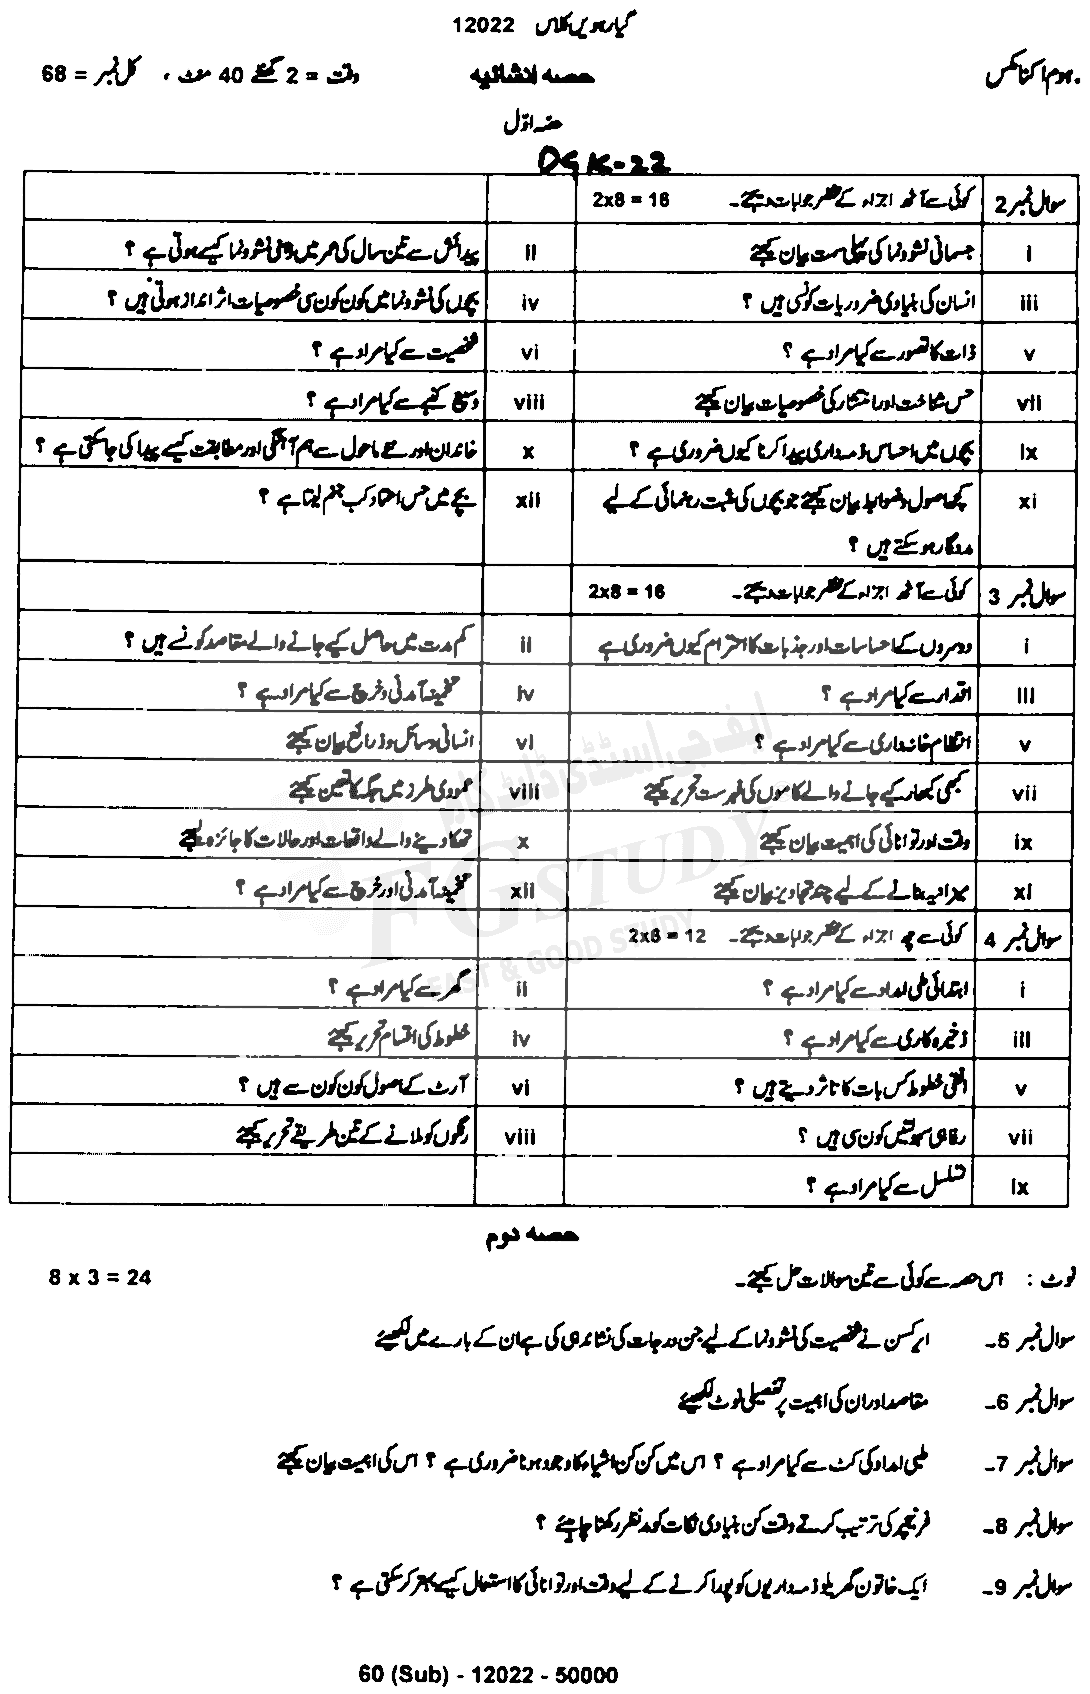 گیارہویں کلاس 12022
ہوم اکنامکس
حصہ انشائیہ
وقت = 2 گھنٹے 40 منٹ ، کل نمبر = 68
حصہ اوّل
DGK-22
سوال نمبر 2 کوئی سے آٹھ اجزاء کے مختصر جوابات دیجئے۔ 2x8 = 16
i جسمانی نشوونما کی پہلی سمت بیان کیجئے
ii پیدائش سے تین سال کی عمر میں ذہنی نشوونما کیسے ہوتی ہے ؟
iii انسان کی بنیادی ضروریات کونسی ہیں ؟
iv بچوں کی نشوونما میں کون کون سی خصوصیات اثر انداز ہوتی ہیں ؟
v ذات کا تصور سے کیا مراد ہے ؟
vi شخصیت سے کیا مراد ہے ؟
vii حس شناخت اور انتشار کی خصوصیات بیان کیجئے
viii وسیع کنبے سے کیا مراد ہے ؟
ix بچوں میں احساس ذمہ داری پیدا کرنا کیوں ضروری ہے ؟
x خاندان اور نئے ماحول سے ہم آہنگی اور مطابقت کیسے پیدا کی جا سکتی ہے ؟
xi کچھ اصول و ضوابط بیان کیجئے جو بچوں کی مثبت رہنمائی کے لیے
مددگار ہو سکتے ہیں ؟
xii بچے میں حس اعتماد کب جنم لیتا ہے ؟
سوال نمبر 3 کوئی سے آٹھ اجزاء کے مختصر جوابات دیجئے۔ 2x8 = 16
i دوسروں کے احساسات اور جذبات کا احترام کیوں ضروری ہے
ii کم مدت میں حاصل کیے جانے والے مقاصد کونسے ہیں ؟
iii اقدار سے کیا مراد ہے ؟
iv تخمینہ آمدنی و خرچ سے کیا مراد ہے ؟
v انتظام خانہ داری سے کیا مراد ہے ؟
vi انسانی وسائل و ذرائع بیان کیجئے
vii کبھی کبھار کیے جانے والے کاموں کی فہرست تحریر کیجئے
viii عمودی طرز میں جگہ کا تعین کیجئے
ix وقت اور توانائی کی اہمیت بیان کیجئے
x تھکا دینے والے واقعات اور حالات کا جائزہ لیجئے
xi میزانیہ بنانے کے لیے چند تجاویز بیان کیجئے
xii تخمینہ آمدنی اور خرچ سے کیا مراد ہے ؟
سوال نمبر 4 کوئی سے چھ اجزاء کے مختصر جوابات دیجئے۔ 2x6 = 12
i ابتدائی طبی امداد سے کیا مراد ہے ؟
ii گھر سے کیا مراد ہے ؟
iii ذخیرہ کاری سے کیا مراد ہے ؟
iv خطوط کی اقسام تحریر کیجئے
v افقی خطوط کس بات کا تاثر دیتے ہیں ؟
vi آرٹ کے اصول کون کون سے ہیں ؟
vii رفاہی سہولتیں کون سی ہیں ؟
viii رنگوں کو ملانے کے تین طریقے تحریر کیجئے
ix تسلسل سے کیا مراد ہے ؟
ایف جی اسٹڈی ڈاٹ کام
FGSTUDY
FAST & GOOD STUDY
حصہ دوم
نوٹ : اس حصہ سے کوئی سے تین سوالات حل کیجئے۔ 8 x 3 = 24
سوال نمبر 5۔ ایرکسن نے شخصیت کی نشوونما کے لیے جن درجات کی نشاندہی کی ہے ان کے بارے میں لکھیئے
سوال نمبر 6۔ مقاصد اور ان کی اہمیت پر تفصیلی نوٹ لکھیئے
سوال نمبر 7۔ طبی امداد کی کٹ سے کیا مراد ہے ؟ اس میں کن کن اشیاء کا وجود ہونا ضروری ہے ؟ اس کی اہمیت بیان کیجئے
سوال نمبر 8۔ فرنیچر کی ترتیب کرتے وقت کن بنیادی نکات کو مدنظر رکھنا چاہئے ؟
سوال نمبر 9۔ ایک خاتون گھریلو ذمہ داریوں کو پورا کرنے کے لیے وقت اور توانائی کا استعمال کیسے بہتر کر سکتی ہے ؟
60 (Sub) - 12022 - 50000